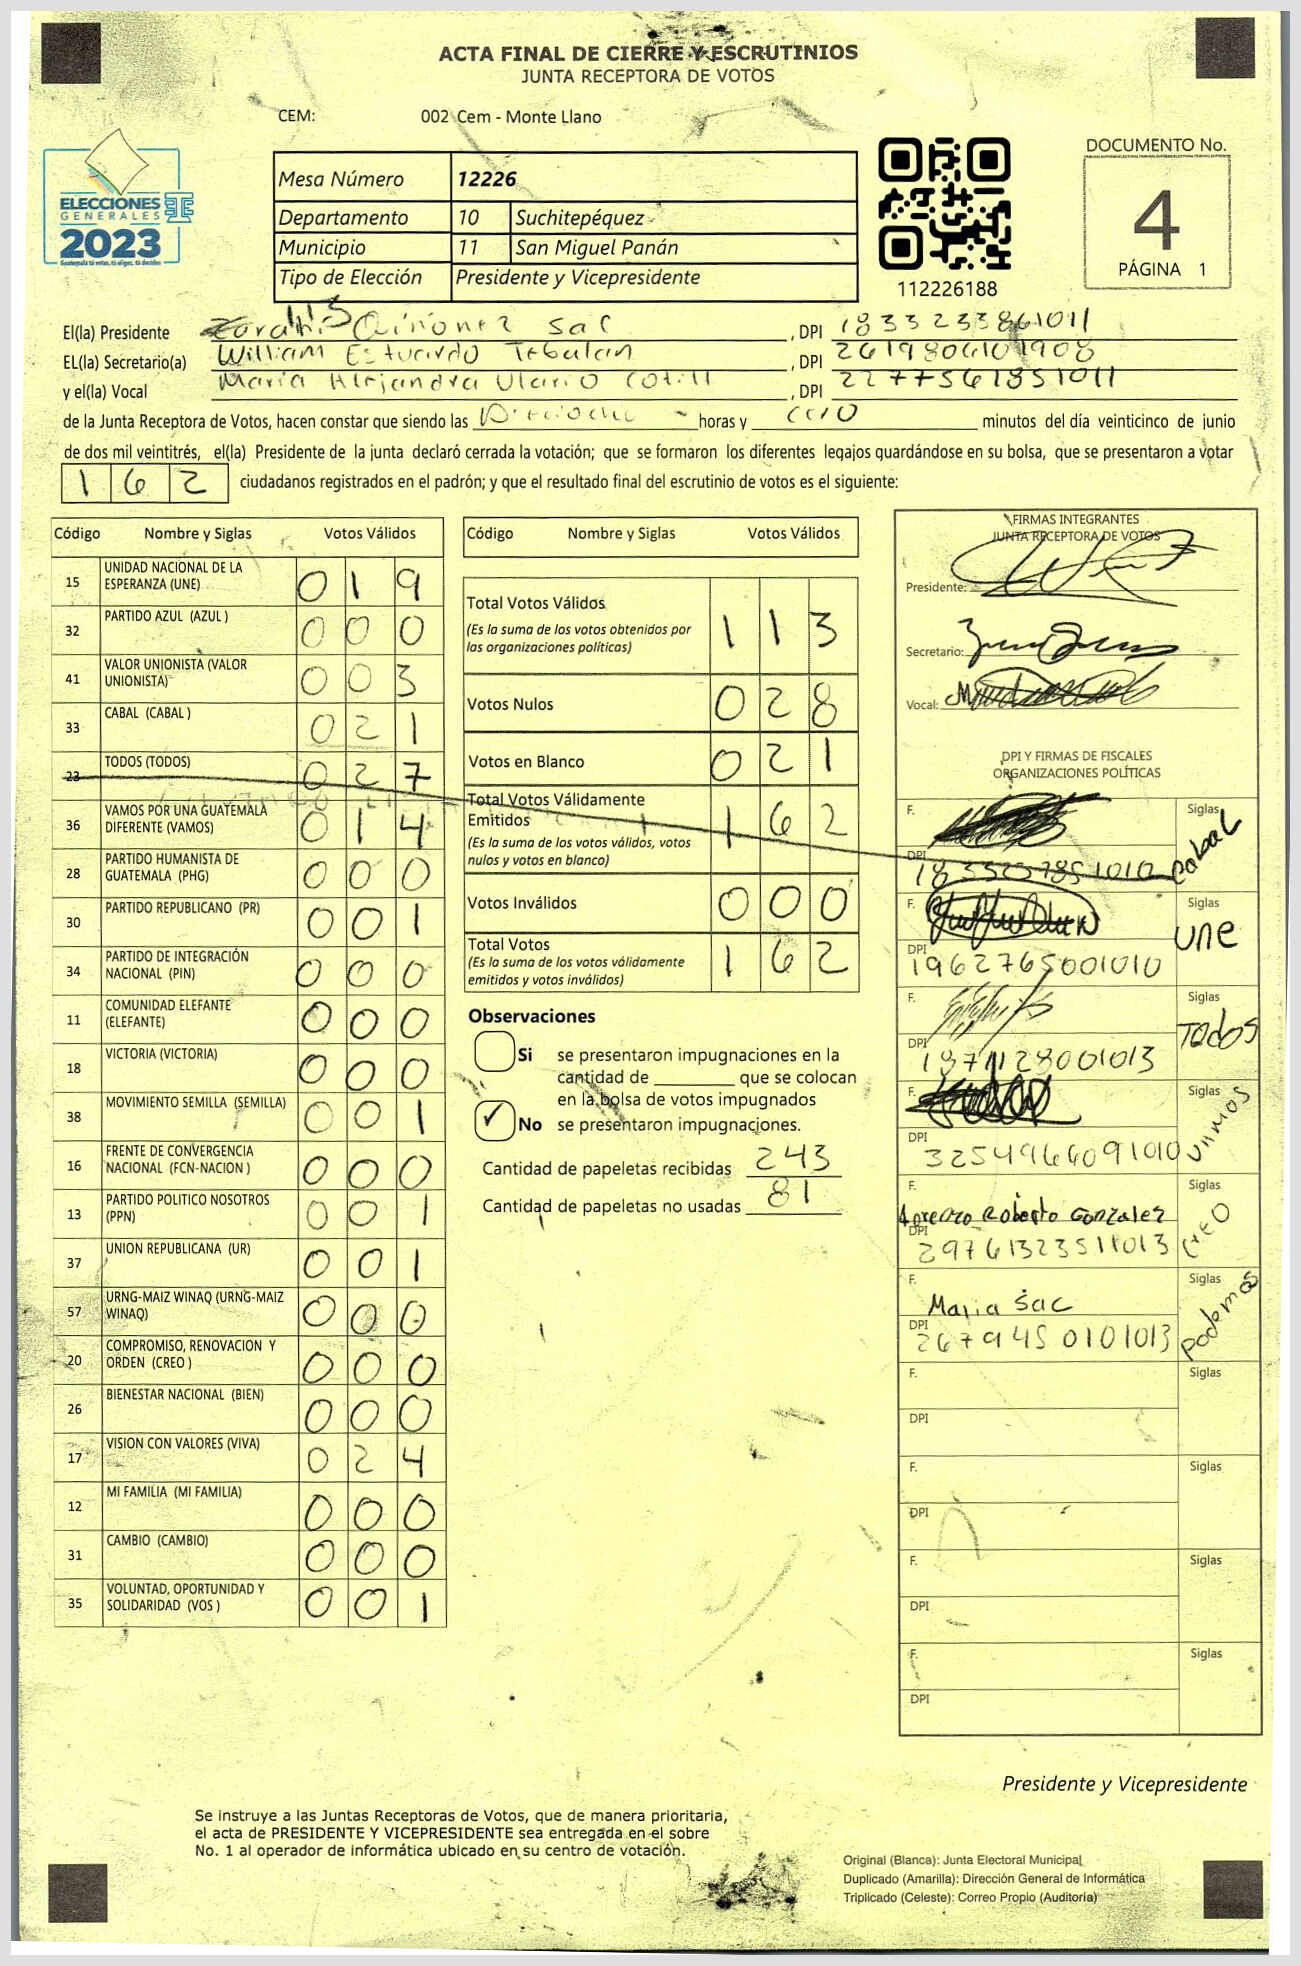 ACTA FINAL DE CIERRE Y ESCRUTINIOS
JUNTA RECEPTORA DE VOTOS
CEM: 002 Cem - Monte Llano
ELECCIONES
GENERALES
2023
Mesa Número 12226
Departamento 10 Suchitepéquez
Municipio 11 San Miguel Panán
Tipo de Elección Presidente y Vicepresidente
112226188
DOCUMENTO No.
4
PÁGINA 1
El(la) Presidente Quiñonez Sac , DPI 1833233861011
EL(la) Secretario(a) William Estuardo , DPI 2619806101908
y el(la) Vocal María Alejandra , DPI 2277561851011
de la Junta Receptora de Votos, hacen constar que siendo las horas y cero minutos del día veinticinco de junio
de dos mil veintitrés, el(la) Presidente de la junta declaró cerrada la votación; que se formaron los diferentes legajos guardándose en su bolsa, que se presentaron a votar
162 ciudadanos registrados en el padrón; y que el resultado final del escrutinio de votos es el siguiente:
Código Nombre y Siglas Votos Válidos
15 UNIDAD NACIONAL DE LA ESPERANZA (UNE) 019
32 PARTIDO AZUL (AZUL ) 000
41 VALOR UNIONISTA (VALOR UNIONISTA) 003
33 CABAL (CABAL ) 021
23 TODOS (TODOS) 027
36 VAMOS POR UNA GUATEMALA DIFERENTE (VAMOS) 014
28 PARTIDO HUMANISTA DE GUATEMALA (PHG) 000
30 PARTIDO REPUBLICANO (PR) 001
34 PARTIDO DE INTEGRACIÓN NACIONAL (PIN) 000
11 COMUNIDAD ELEFANTE (ELEFANTE) 000
18 VICTORIA (VICTORIA) 000
38 MOVIMIENTO SEMILLA (SEMILLA) 001
16 FRENTE DE CONVERGENCIA NACIONAL (FCN-NACION ) 000
13 PARTIDO POLITICO NOSOTROS (PPN) 001
37 UNION REPUBLICANA (UR) 001
57 URNG-MAIZ WINAQ (URNG-MAIZ WINAQ) 000
20 COMPROMISO, RENOVACION Y ORDEN (CREO ) 000
26 BIENESTAR NACIONAL (BIEN) 000
17 VISION CON VALORES (VIVA) 024
12 MI FAMILIA (MI FAMILIA) 000
31 CAMBIO (CAMBIO) 000
35 VOLUNTAD, OPORTUNIDAD Y SOLIDARIDAD (VOS ) 001
Código Nombre y Siglas Votos Válidos
Total Votos Válidos 113
(Es la suma de los votos obtenidos por
las organizaciones políticas)
Votos Nulos 028
Votos en Blanco 021
Total Votos Válidamente
Emitidos 162
(Es la suma de los votos válidos, votos
nulos y votos en blanco)
Votos Inválidos 000
Total Votos 162
(Es la suma de los votos válidamente
emitidos y votos inválidos)
Observaciones
Si se presentaron impugnaciones en la
cantidad de ________ que se colocan
en la bolsa de votos impugnados
✓ No se presentaron impugnaciones.
Cantidad de papeletas recibidas 243
Cantidad de papeletas no usadas 81
FIRMAS INTEGRANTES
JUNTA RECEPTORA DE VOTOS
Presidente:
Secretario:
Vocal:
DPI Y FIRMAS DE FISCALES
ORGANIZACIONES POLÍTICAS
F. Siglas Cabal
DPI
F. Siglas UNE
DPI 1962765001010
F. Siglas TODOS
DPI 1871128001013
F. Siglas
DPI 3254966091010
F. Lorenzo Roberto Gonzalez Siglas CREO
DPI 2976132351013
F. Maria Sac Siglas podemos
DPI 2679450101013
F. Siglas
DPI
F. Siglas
DPI
F. Siglas
DPI
F. Siglas
DPI
Presidente y Vicepresidente
Se instruye a las Juntas Receptoras de Votos, que de manera prioritaria,
el acta de PRESIDENTE Y VICEPRESIDENTE sea entregada en el sobre
No. 1 al operador de informática ubicado en su centro de votación.
Original (Blanca): Junta Electoral Municipal
Duplicado (Amarilla): Dirección General de Informática
Triplicado (Celeste): Correo Propio (Auditoria)